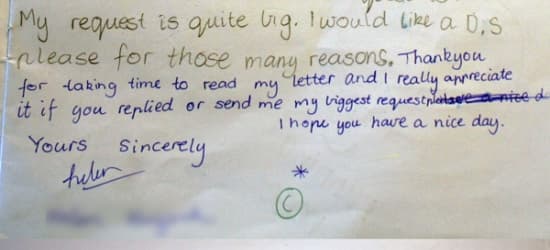 My request is quite big. I would like a D.S
please for those many reasons. Thankyou
for taking time to read my letter and I really appreciate
it if you replied or send me my biggest request
I hope you have a nice day.
Yours Sincerely
*
C